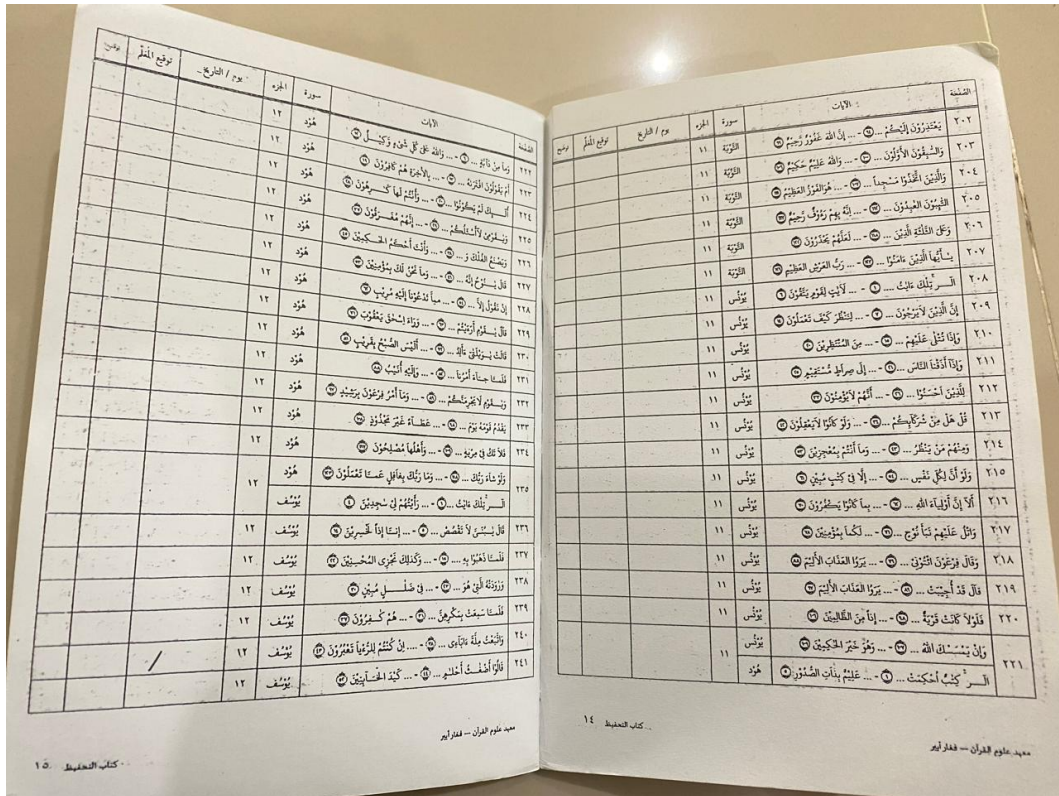 الصَّفْحَة الآيات سورة الجزء يوم / التاريخ توقيع المُعَلِّم توقيع
٢٠٢ يَعْتَذِرُوْنَ إِلَيْكُمْ ... - ... إِنَّ اللهَ غَفُوْرٌ رَّحِيْمٌ التَّوْبَة ١١
٢٠٣ وَالسّٰبِقُوْنَ الأَوَّلُوْنَ ... - ... وَاللهُ عَلِيْمٌ حَكِيْمٌ التَّوْبَة ١١
٢٠٤ وَالَّذِيْنَ اتَّخَذُوْا مَسْجِداً ... - ... هُوَ الفَوْزُ العَظِيْمُ التَّوْبَة ١١
٢٠٥ التّٰئِبُوْنَ العٰبِدُوْنَ ... - ... إِنَّهُ بِهِمْ رَءُوْفٌ رَّحِيْمٌ التَّوْبَة ١١
٢٠٦ وَعَلَى الثَّلٰثَةِ الَّذِيْنَ ... - ... لَعَلَّهُمْ يَحْذَرُوْنَ التَّوْبَة ١١
٢٠٧ يٰٓأَيُّهَا الَّذِيْنَ ءَامَنُوْا ... - ... رَبُّ العَرْشِ العَظِيْمِ التَّوْبَة ١١
٢٠٨ الٓـر تِلْكَ ءَايٰتُ ... - ... لَأٰيٰتٍ لِقَوْمٍ يَتَّقُوْنَ يُوْنُس ١١
٢٠٩ إِنَّ الَّذِيْنَ لاَ يَرْجُوْنَ ... - ... لِنَنْظُرَ كَيْفَ تَعْمَلُوْنَ يُوْنُس ١١
٢١٠ وَإِذَا تُتْلَى عَلَيْهِمْ ... - ... مِنَ المُنْتَظِرِيْنَ يُوْنُس ١١
٢١١ وَإِذَآ أَذَقْنَا النَّاسَ ... - ... إِلَى صِرَاطٍ مُسْتَقِيْمٍ يُوْنُس ١١
٢١٢ لِلَّذِيْنَ أَحْسَنُوْا ... - ... أَنَّهُمْ لاَ يُؤْمِنُوْنَ يُوْنُس ١١
٢١٣ قُلْ هَلْ مِنْ شُرَكَآئِكُمْ ... - ... وَلَوْ كَانُوْا لاَ يَعْقِلُوْنَ يُوْنُس ١١
٢١٤ وَمِنْهُمْ مَنْ يَنْظُرُ ... - ... وَمآ أَنْتُمْ بِمُعْجِزِيْنَ يُوْنُس ١١
٢١٥ وَلَوْ أَنَّ لِكُلِّ نَفْسٍ ... - ... إِلَّا فِى كِتٰبٍ مُبِيْنٍ يُوْنُس ١١
٢١٦ أَلَآ إِنَّ أَوْلِيَآءَ اللهِ ... - ... بِما كَانُوْا يَكْفُرُوْنَ يُوْنُس ١١
٢١٧ وَاتْلُ عَلَيْهِمْ نَبَأَ نُوْحٍ ... - ... لَكُما بِمُؤْمِنِيْنَ يُوْنُس ١١
٢١٨ وَقَالَ فِرْعَوْنُ ائْتُوْنِى ... - ... يَرَوُا العَذَابَ الأَلِيْمَ يُوْنُس ١١
٢١٩ قَالَ قَدْ أُجِيْبَتْ ... - ... يَرَوُا العَذَابَ الأَلِيْمَ يُوْنُس ١١
٢٢٠ فَلَوْلاَ كَانَتْ قَرْيَةٌ ... - ... إِذاً مِنَ الظَّالِمِيْنَ يُوْنُس ١١
٢٢١ وَإِنْ يَمْسَسْكَ اللهُ ... - ... وَهُوَ خَيْرُ الحٰكِمِيْنَ يُوْنُس ١١
الٓـر كِتٰبٌ أُحْكِمَتْ ... - ... عَلِيْمٌ بِذَاتِ الصُّدُوْرِ هُوْد
معهد علوم القرآن — ففار أير
كتاب التحفيظ ١٤
الصَّفْحَة الآيات سورة الجزء يوم / التاريخ توقيع المُعَلِّم توقيع
٢٢٢ وَما مِنْ دَآبَّةٍ ... - ... وَاللهُ عَلَى كُلِّ شَىْءٍ وَكِيْـــلٌ هُوْد ١٢
٢٢٣ أَمْ يَقُوْلُوْنَ افْتَرَىهُ ... - ... بِالأٰخِرَةِ هُمْ كَافِرُوْنَ هُوْد
٢٢٤ أُولٰٓئِكَ لَمْ يَكُوْنُوْا ... - ... وَأَنْتُمْ لَهَا كٰـــرِهُوْنَ هُوْد
٢٢٥ وَيٰـقَوْمِ لآ أَسْئَلُكُمْ ... - ... إِنَّهُمْ مُغْــرَقُوْنَ هُوْد
٢٢٦ وَيَصْنَعُ الفُلْكَ وَ ... - ... وَأَنْتَ أَحْكَمُ الحٰـكِمِيْنَ هُوْد
٢٢٧ قَالَ يٰــنُوْحُ إِنَّهُ ... - ... وَما نَحْنُ لَكَ بِمُؤْمِنِيْنَ هُوْد
٢٢٨ إِنْ نَقُوْلُ إِلاَّ ... - ... مِمّا تَدْعُوْنَآ إِلَيْهِ مُرِيْبٍ هُوْد
٢٢٩ قَالَ يٰــقَوْمِ أَرَءَيْتُمْ ... - ... وَرَآءِ اِسْحٰقَ يَعْقُوْبَ هُوْد
٢٣٠ قَالَتْ يٰوَيْلَتٰى ءَأَلِدُ ... - ... أَلَيْسَ الصُّبْحُ بِقَرِيْبٍ هُوْد
٢٣١ فَلَمّـا جآءَ أَمْرُنَا ... - ... وَإِلَيْهِ أُنِيْبُ هُوْد ١٢
٢٣٢ وَيٰـقَوْمِ لاَ يَجْرِمَنَّكُمْ ... - ... وَمَآ أَمْرُ فِرْعَوْنَ بِرَشِيْدٍ هُوْد ١٢
٢٣٣ يَقْدُمُ قَوْمَهُ يَوْمَ ... - ... عَطـآءً غَيْرَ مَجْذُوْذٍ هُوْد ١٢
٢٣٤ فَلاَ تَكُ فِى مِرْيَةٍ ... - ... وَأَهْلُهَا مُصْلِحُوْنَ هُوْد ١٢
٢٣٥ وَلَوْ شَآءَ رَبُّكَ ... - ... وَمَا رَبُّكَ بِغَافِلٍ عَمّـا تَعْمَلُوْنَ هُوْد ١٢
الٓـــر تِلْكَ ءَايٰتُ ... - ... رَأَيْتُهُمْ لِىْ سٰجِدِيْنَ يُوْسُف
٢٣٦ قَالَ يٰـبُنَىَّ لاَ تَقْصُصْ ... - ... إِنّـا إِذاً لَّخٰسِرُوْنَ يُوْسُف ١٢
٢٣٧ فَلَمّـا ذَهَبُوْا بِهِ ... - ... وَكَذٰلِكَ نَجْزِى المُحْسِنِيْنَ يُوْسُف ١٢
٢٣٨ وَرٰوَدَتْهُ الَّتِىْ هُوَ ... - ... فِىْ ضَلٰـــلٍ مُبِيْنٍ يُوْسُف ١٢
٢٣٩ فَلَمّـا سَمِعَتْ بِمَكْرِهِنَّ ... - ... هُمْ كٰــفِرُوْنَ يُوْسُف ١٢
٢٤٠ وَاتَّبَعْتُ مِلَّةَ ءَابَآءِى ... - .... إِنْ كُنْتُمْ لِلرُّءْيَا تَعْبُرُوْنَ يُوْسُف ١٢
٢٤١ قَالُوْا أَضْغٰثُ أَحْلٰمٍ ... - ... كَيْدَ الخَـآئِنِيْنَ يُوْسُف ١٢ /
معهد علوم القرآن — ففار أير
كتاب التحفيظ ١٥